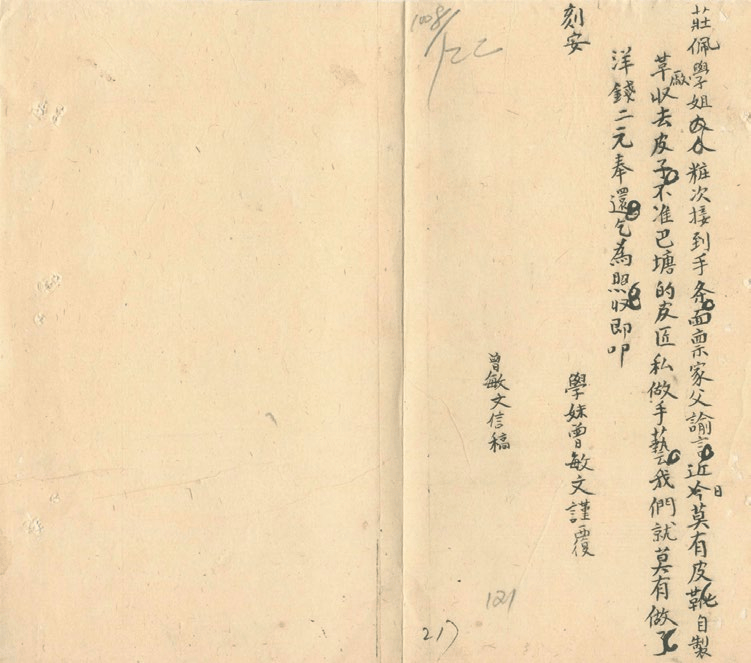 莊佩學姐粧次接到手条面禀家父諭言近日莫有皮靴自製
草廠收去皮子不准巴塘的皮匠私做手藝我們就莫有做了
洋錢二元奉還乞為照收即叩
刻安
學妹曾敏文謹覆
曾敏文信稿
121
217